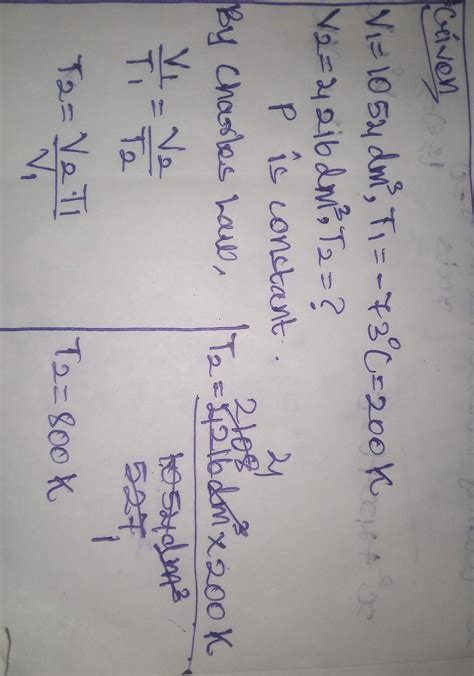 Given
V1=1054dm³, T1=-73°C=200K
V2=4216dm³, T2=?
P is constant.
By Charles law,
V1/T1 = V2/T2
T2= V2 T1/V1
4
2108
T2= 4216dm³ x 200K
1054dm³
527
1
T2=800K